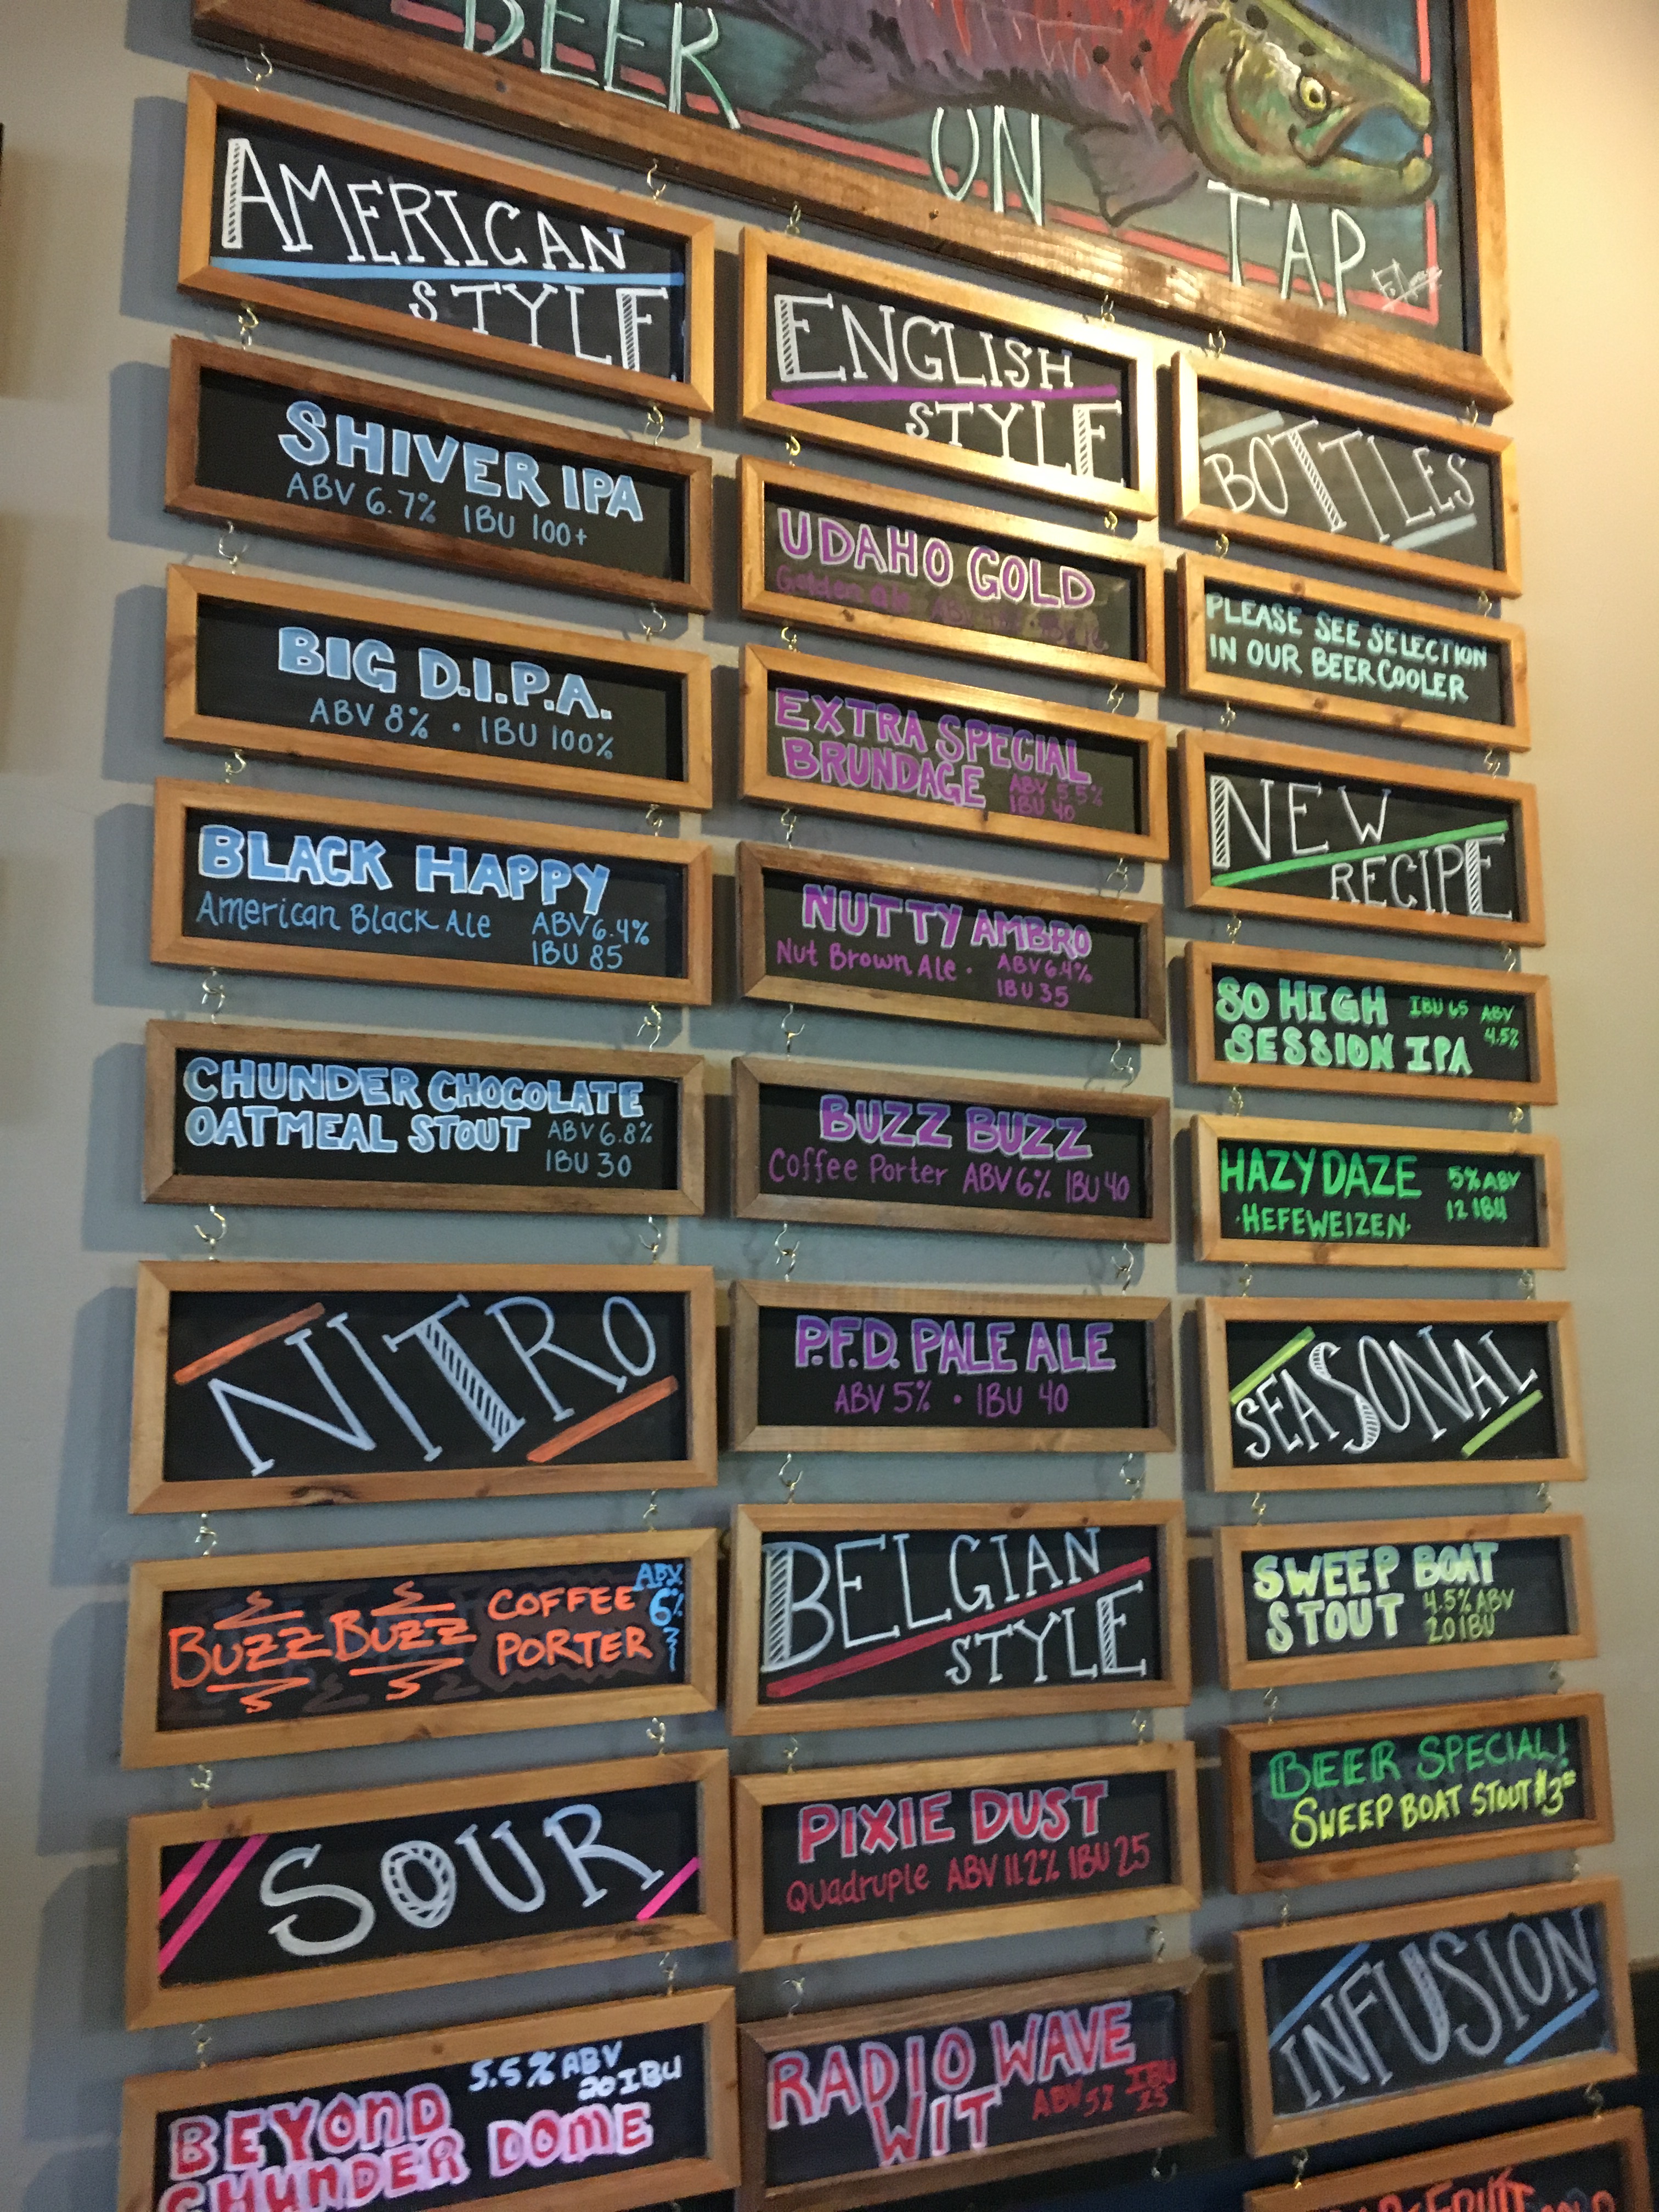 BEER
ON
TAP
AMERICAN
STYLE
SHIVER IPA
ABV 6.7% IBU 100+
BIG D.I.P.A.
ABV 8% • IBU 100%
BLACK HAPPY
American Black Ale ABV 6.4%
IBU 85
CHUNDER CHOCOLATE
OATMEAL STOUT ABV 6.8%
IBU 30
NITRO
BUZZ BUZZ COFFEE PORTER ABV 6%
SOUR
5.5% ABV
20 IBU
BEYOND
CHUNDER DOME
ENGLISH
STYLE
UDAHO GOLD
Golden Ale
EXTRA SPECIAL
BRUNDAGE ABV 5.5%
IBU 40
NUTTY AMBRO
Nut Brown Ale • ABV 6.4%
IBU 35
BUZZ BUZZ
Coffee Porter ABV 6% IBU 40
P.F.D. PALE ALE
ABV 5% • IBU 40
BELGIAN
STYLE
PIXIE DUST
Quadruple ABV 11.2% IBU 25
RADIO WAVE
WIT ABV 5% IBU 25
BOTTLES
PLEASE SEE SELECTION
IN OUR BEER COOLER
NEW
RECIPE
SO HIGH IBU 65 ABV 4.5%
SESSION IPA
HAZY DAZE 5% ABV
•HEFEWEIZEN• 12 IBU
SEASONAL
SWEEP BOAT
STOUT 4.5% ABV
20 IBU
BEER SPECIAL!
SWEEP BOAT STOUT $3
INFUSION